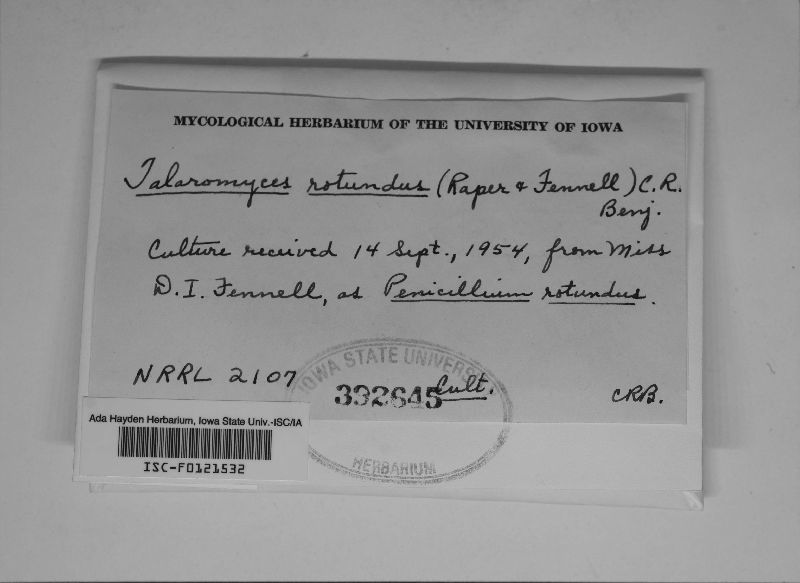 MYCOLOGICAL HERBARIUM OF THE UNIVERSITY OF IOWA
Talaromyces rotundus (Raper & Fennell) C.R.
Benj.
Culture received 14 Sept., 1954, from Miss
D.I. Fennell, as Penicillium rotundus.
NRRL 2107
IOWA STATE UNIVERSI
392645
Cult.
CRB.
HERBARIUM
Ada Hayden Herbarium, Iowa State Univ.-ISC/IA
ISC-F0121532